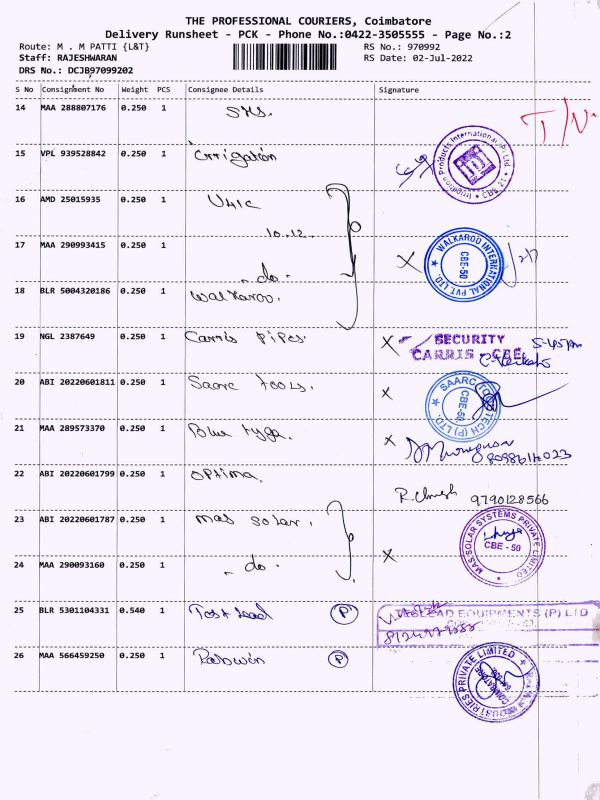 THE PROFESSIONAL COURIERS, Coimbatore
Delivery Runsheet - PCK - Phone No.:0422-3505555 - Page No.:2
Route: M . M PATTI {L&T}
RS No.: 970992
Staff: RAJESHWARAN
RS Date: 02-Jul-2022
DRS No.: DCJB97099202
S No Consignment No Weight PCS Consignee Details Signature
14 MAA 288807176 0.250 1 SMS. T/N
15 VPL 939528842 0.250 1 Irrigation Irrigation Products International (P) Ltd. CBE-21
16 AMD 25015935 0.250 1
10.12.
17 MAA 290993415 0.250 1 - do - X WALKAROO INTERNATIONAL PVT. LTD. CBE-50
18 BLR 5004320186 0.250 1 Walkaroo.
19 NGL 2387649 0.250 1 Carris Pipes. X SECURITY CARRIS - CBE 5-45pm
20 ABI 20220601811 0.250 1 Saarc tools. X SAARC TOOLS TECH (P) LTD. CBE-50
21 MAA 289573370 0.250 1 Blue tyga. X
22 ABI 20220601799 0.250 1 Optima. 9790128566
23 ABI 20220601787 0.250 1 mas solar. MAS SOLAR SYSTEMS PRIVATE LIMITED CBE - 50
24 MAA 290093160 0.250 1 - do - X
25 BLR 5301104331 0.540 1 Test lead P TESTLEAD EQUIPMENTS (P) LTD
26 MAA 566459250 0.250 1 P INDUSTRIES PRIVATE LIMITED COIMBATORE